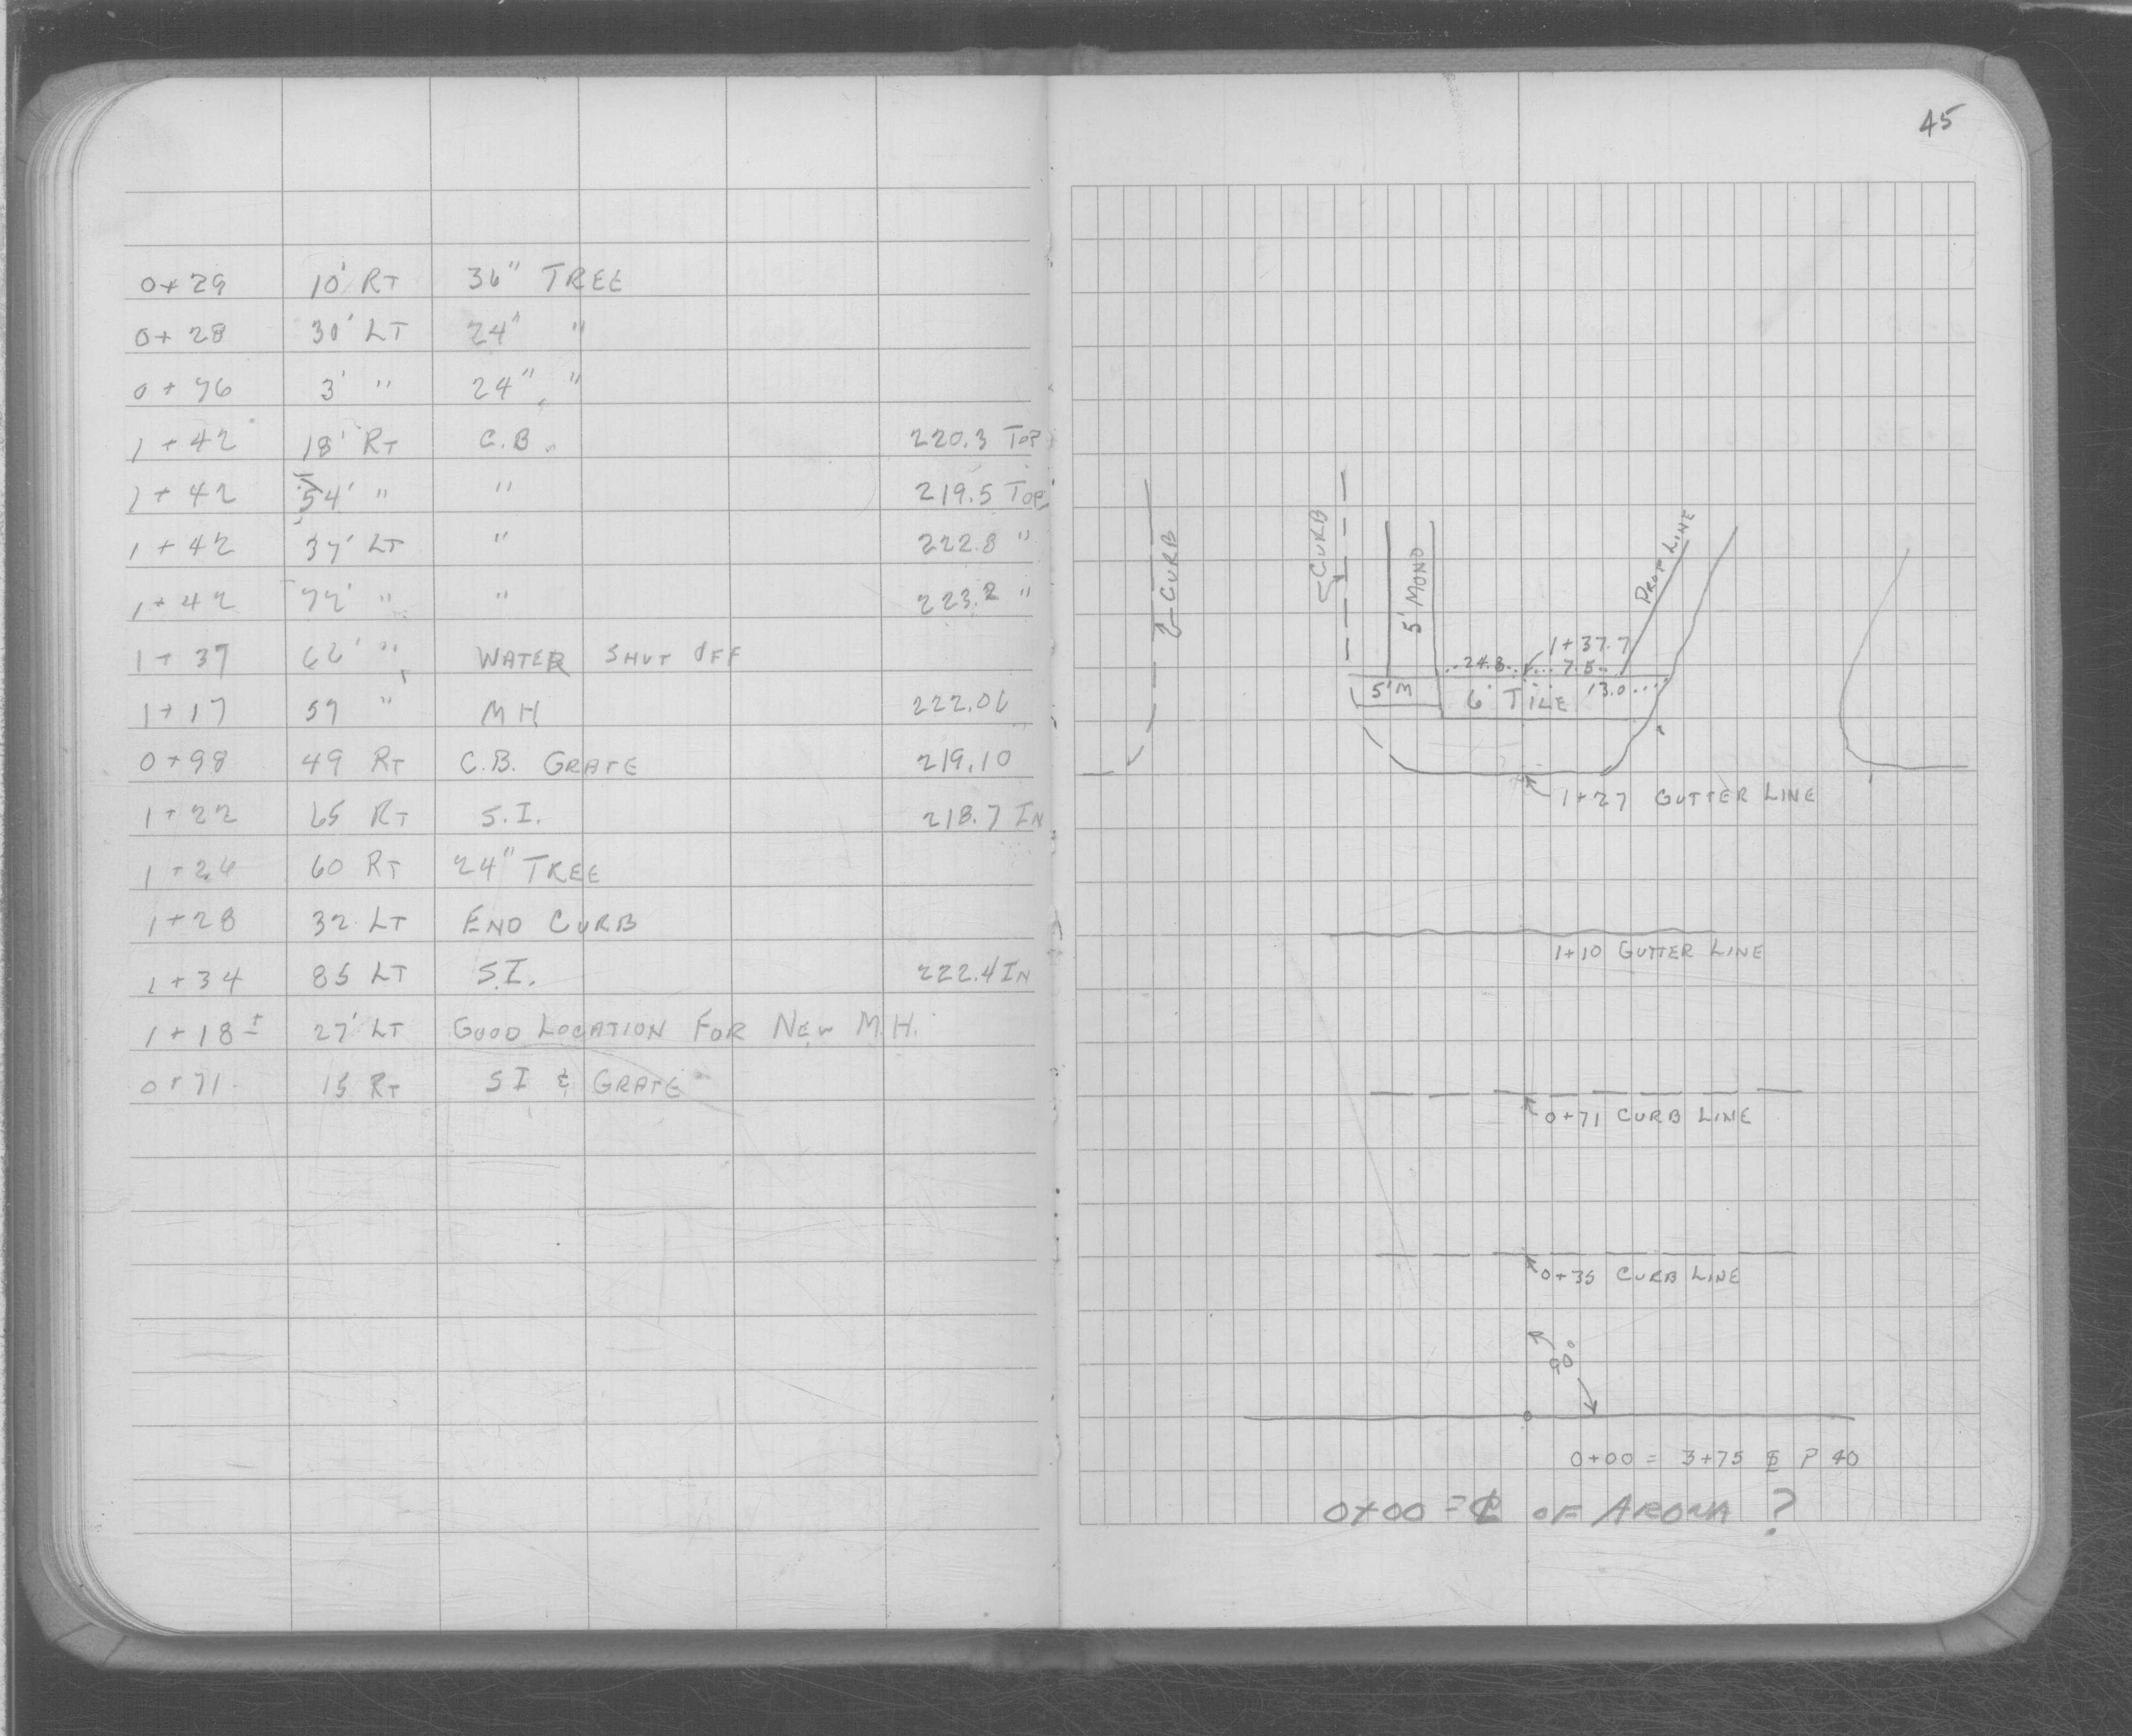 45
0+29 10' RT 36" TREE
0+28 30' LT 24" "
0+76 3' " 24" "
1+42 18' RT C.B. 220.3 TOP
1+42 54' " " 219.5 TOP
1+42 37' LT " 222.8 "
1+42 72' " " 223.2 "
1+37 62' " WATER SHUT OFF
1+17 57 " MH 222.06
0+98 49 RT C.B. GRATE 219.10
1+22 65 RT S.I. 218.7 IN
1+26 60 RT 24" TREE
1+28 32 LT END CURB
1+34 85 LT S.I. 222.4 IN
1+18± 27' LT GOOD LOCATION FOR NEW M.H.
0+71 15 RT SI & GRATE
CURB
CURB
5' MONO
PROP LINE
1+37.7
24.8 7.5
5'M 6' TILE 13.0
1+27 GUTTER LINE
1+10 GUTTER LINE
0+71 CURB LINE
0+35 CURB LINE
90°
0+00 = 3+75 ℄ P 40
0+00 = ℄ OF ARONA ?